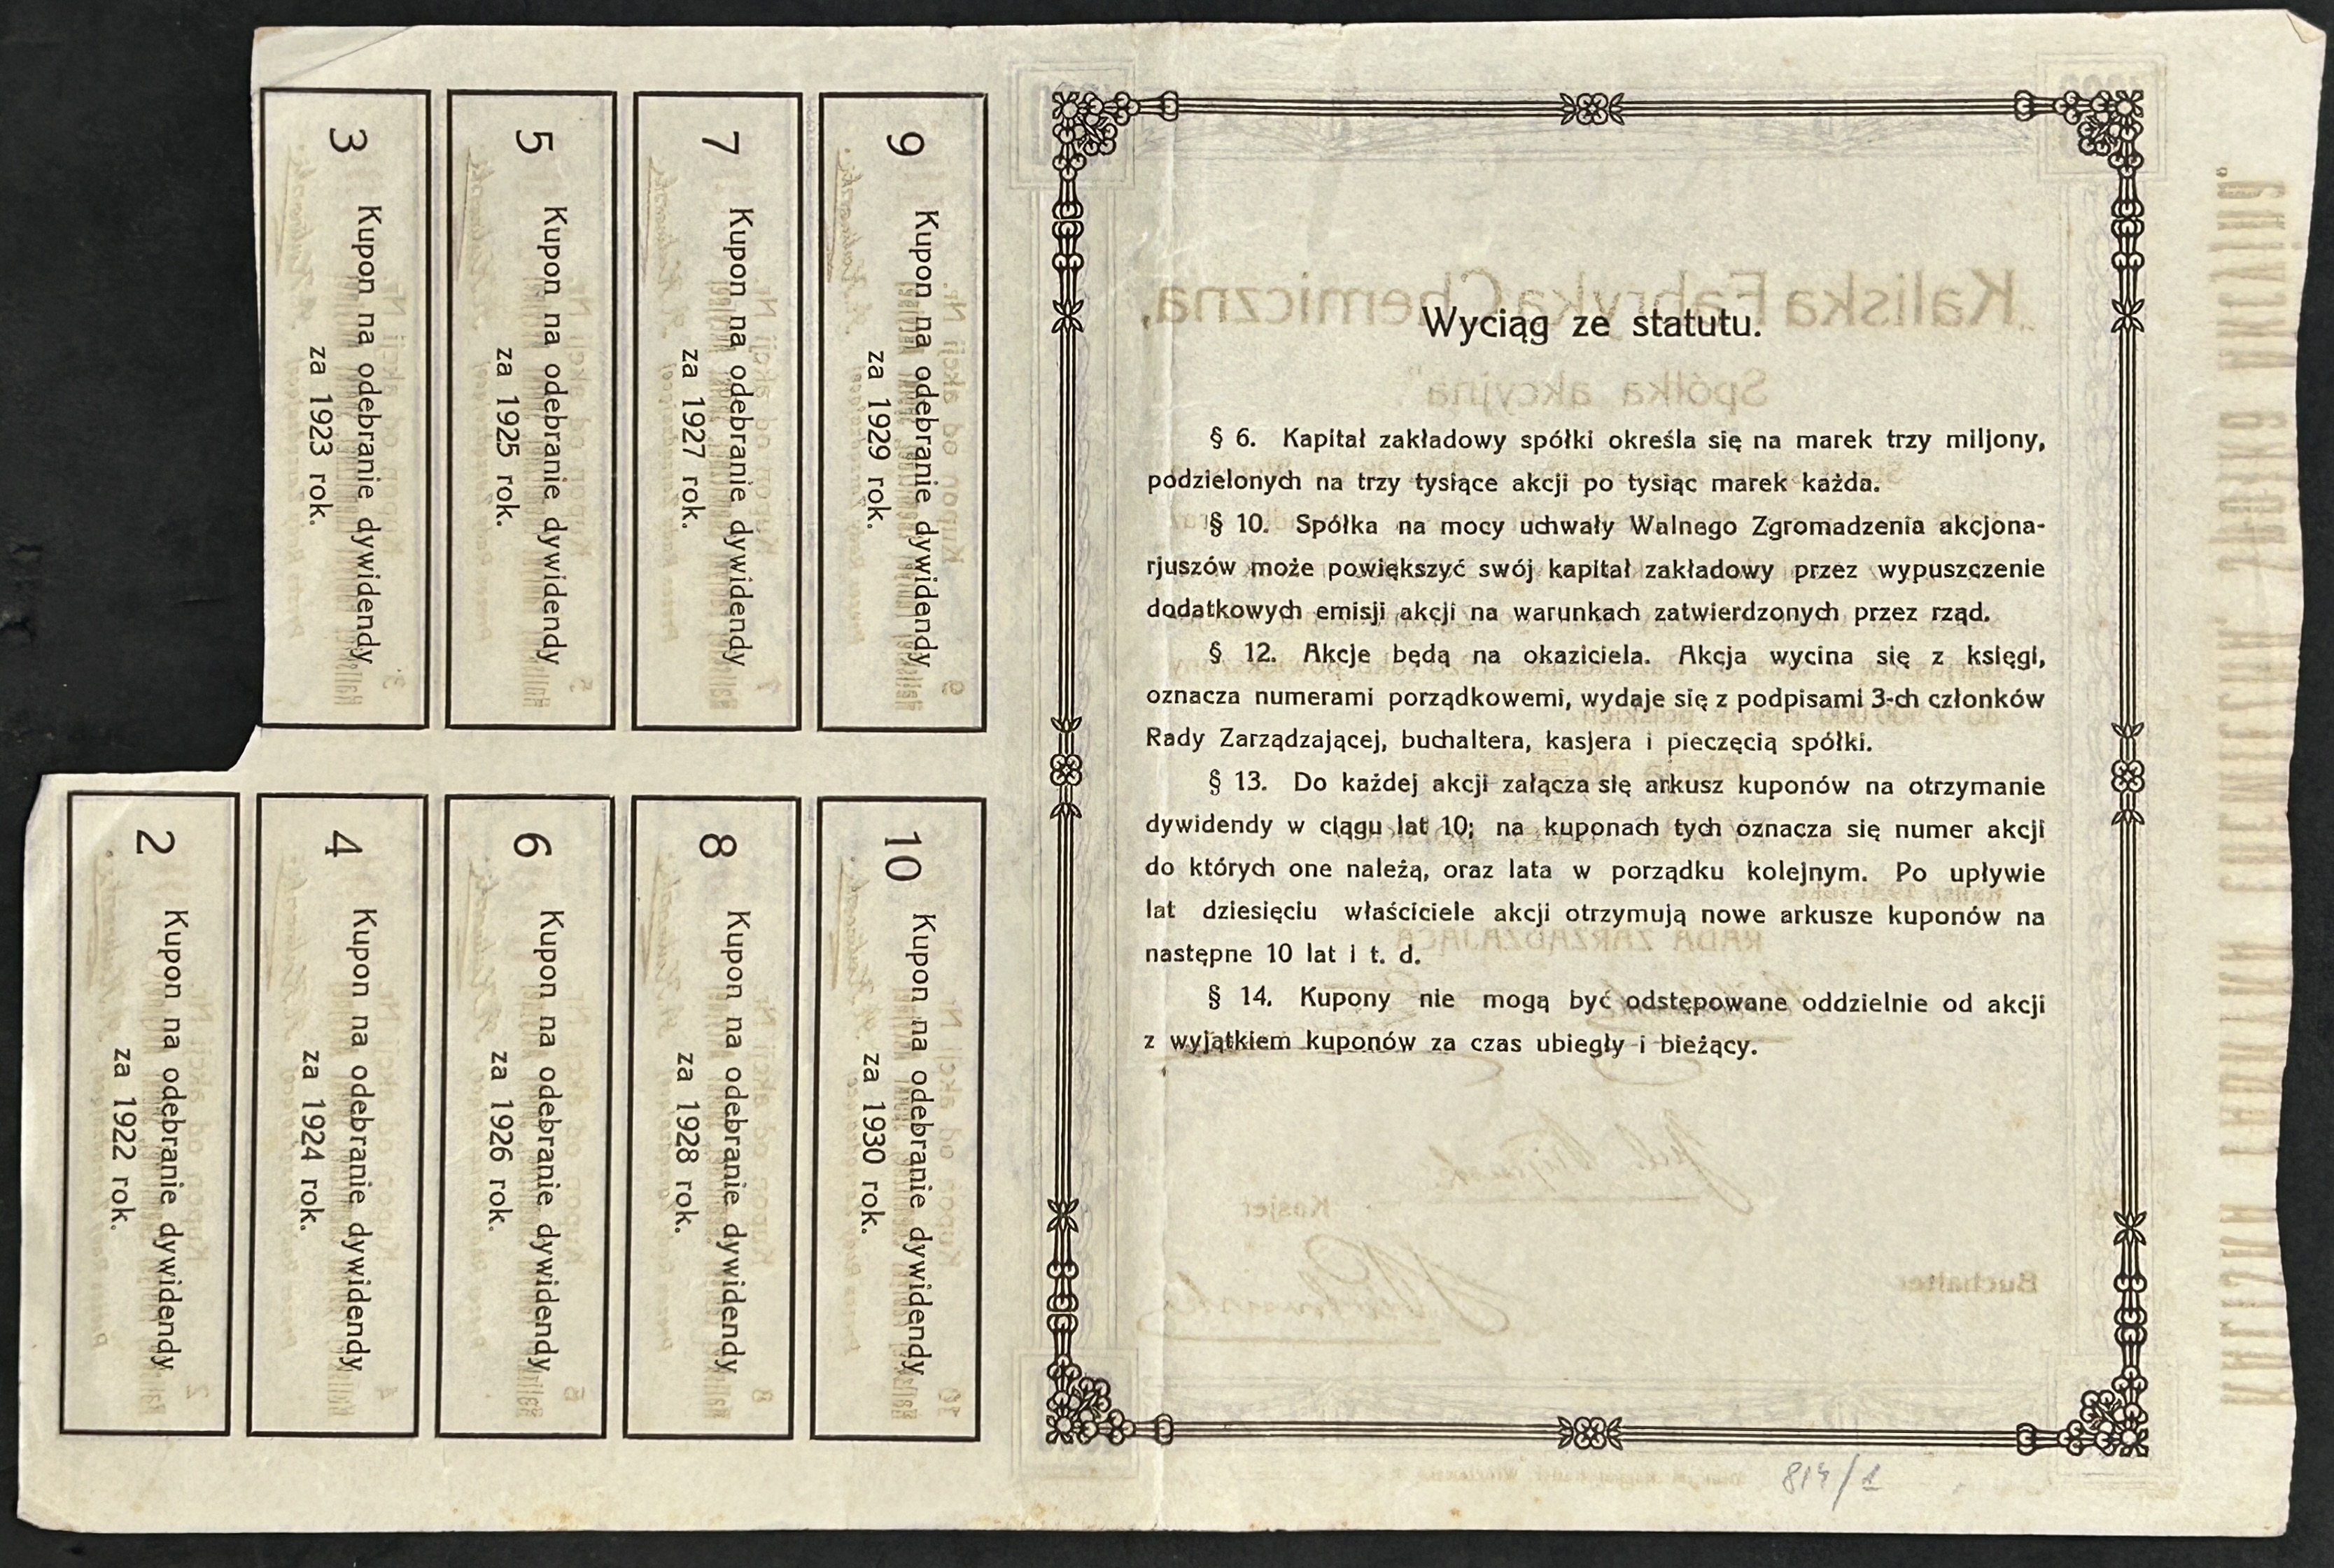 3
Kupon na odebranie dywidendy
za 1923 rok.
5
Kupon na odebranie dywidendy
za 1925 rok.
7
Kupon na odebranie dywidendy
za 1927 rok.
9
Kupon na odebranie dywidendy
za 1929 rok.
2
Kupon na odebranie dywidendy
za 1922 rok.
4
Kupon na odebranie dywidendy
za 1924 rok.
6
Kupon na odebranie dywidendy
za 1926 rok.
8
Kupon na odebranie dywidendy
za 1928 rok.
10
Kupon na odebranie dywidendy
za 1930 rok.
Kaliska Fabryka Chemiczna,
Wyciąg ze statutu.
Spółka akcyjna"
§ 6. Kapitał zakładowy spółki określa się na marek trzy miljony,
podzielonych na trzy tysiące akcji po tysiąc marek każda.
§ 10. Spółka na mocy uchwały Walnego Zgromadzenia akcjona-
rjuszów może powiększyć swój kapitał zakładowy przez wypuszczenie
dodatkowych emisji akcji na warunkach zatwierdzonych przez rząd.
§ 12. Akcje będą na okaziciela. Akcja wycina się z księgi,
oznacza numerami porządkowemi, wydaje się z podpisami 3-ch członków
Rady Zarządzającej, buchaltera, kasjera i pieczęcią spółki.
§ 13. Do każdej akcji załącza się arkusz kuponów na otrzymanie
dywidendy w ciągu lat 10; na kuponach tych oznacza się numer akcji
do których one należą, oraz lata w porządku kolejnym. Po upływie
lat dziesięciu właściciele akcji otrzymują nowe arkusze kuponów na
następne 10 lat i t. d.
RADA ZARZĄDZAJĄCA
§ 14. Kupony nie mogą być odstępowane oddzielnie od akcji
z wyjątkiem kuponów za czas ubiegły i bieżący.
Kasjer
Buchalter
814/1